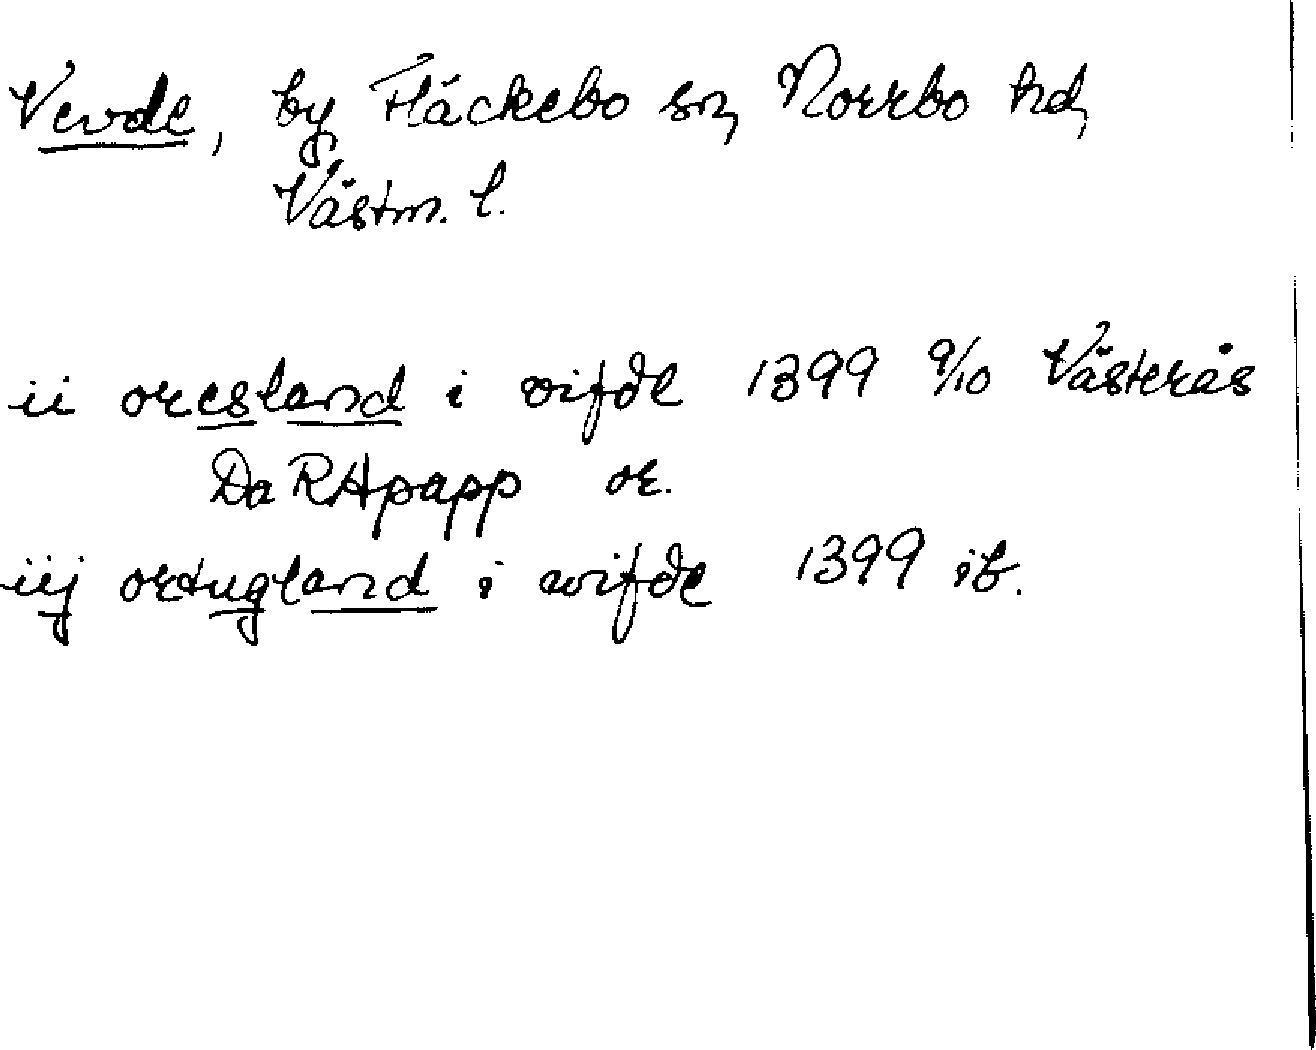 Vevde, by Fläckebo sn, Norrbo hd,
Västm. l.
ii oresland i vifde 1399 9/10 Västerås
Da RApapp or.
iij ortugland i wifde 1399 ib.